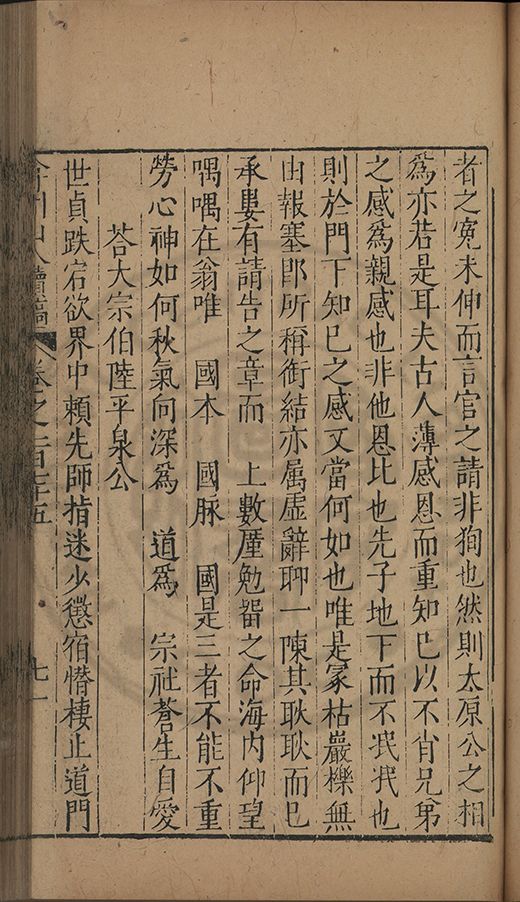 者之寃未伸而言官之請非狥也然則太原公之相
為亦若是耳夫古人薄感恩而重知巳以不肖兄弟
之感為親感也非他恩比也先子地下而不泯泯也
則於門下知巳之感又當何如也唯是冡枯巖櫟無
由報塞卽所稱銜結亦属虛辭聊一陳其耿耿而巳
承婁有請告之章而　上數厪勉畱之命海内仰望
喁喁在翁唯　國本　國脉　國是三者不能不重
勞心神如何秋氣向深為　道為　宗社蒼生自愛
荅大宗伯陸平泉公
世貞跌宕欲界中賴先師指迷少懲宿愆棲止道門
弇州山人續稿　卷之一百七十五　七一